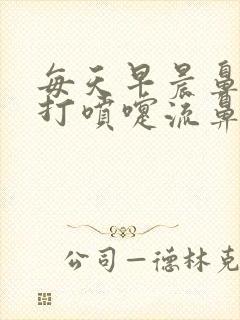 每天早晨鼻
打噴嚏流鼻
公司—德林克